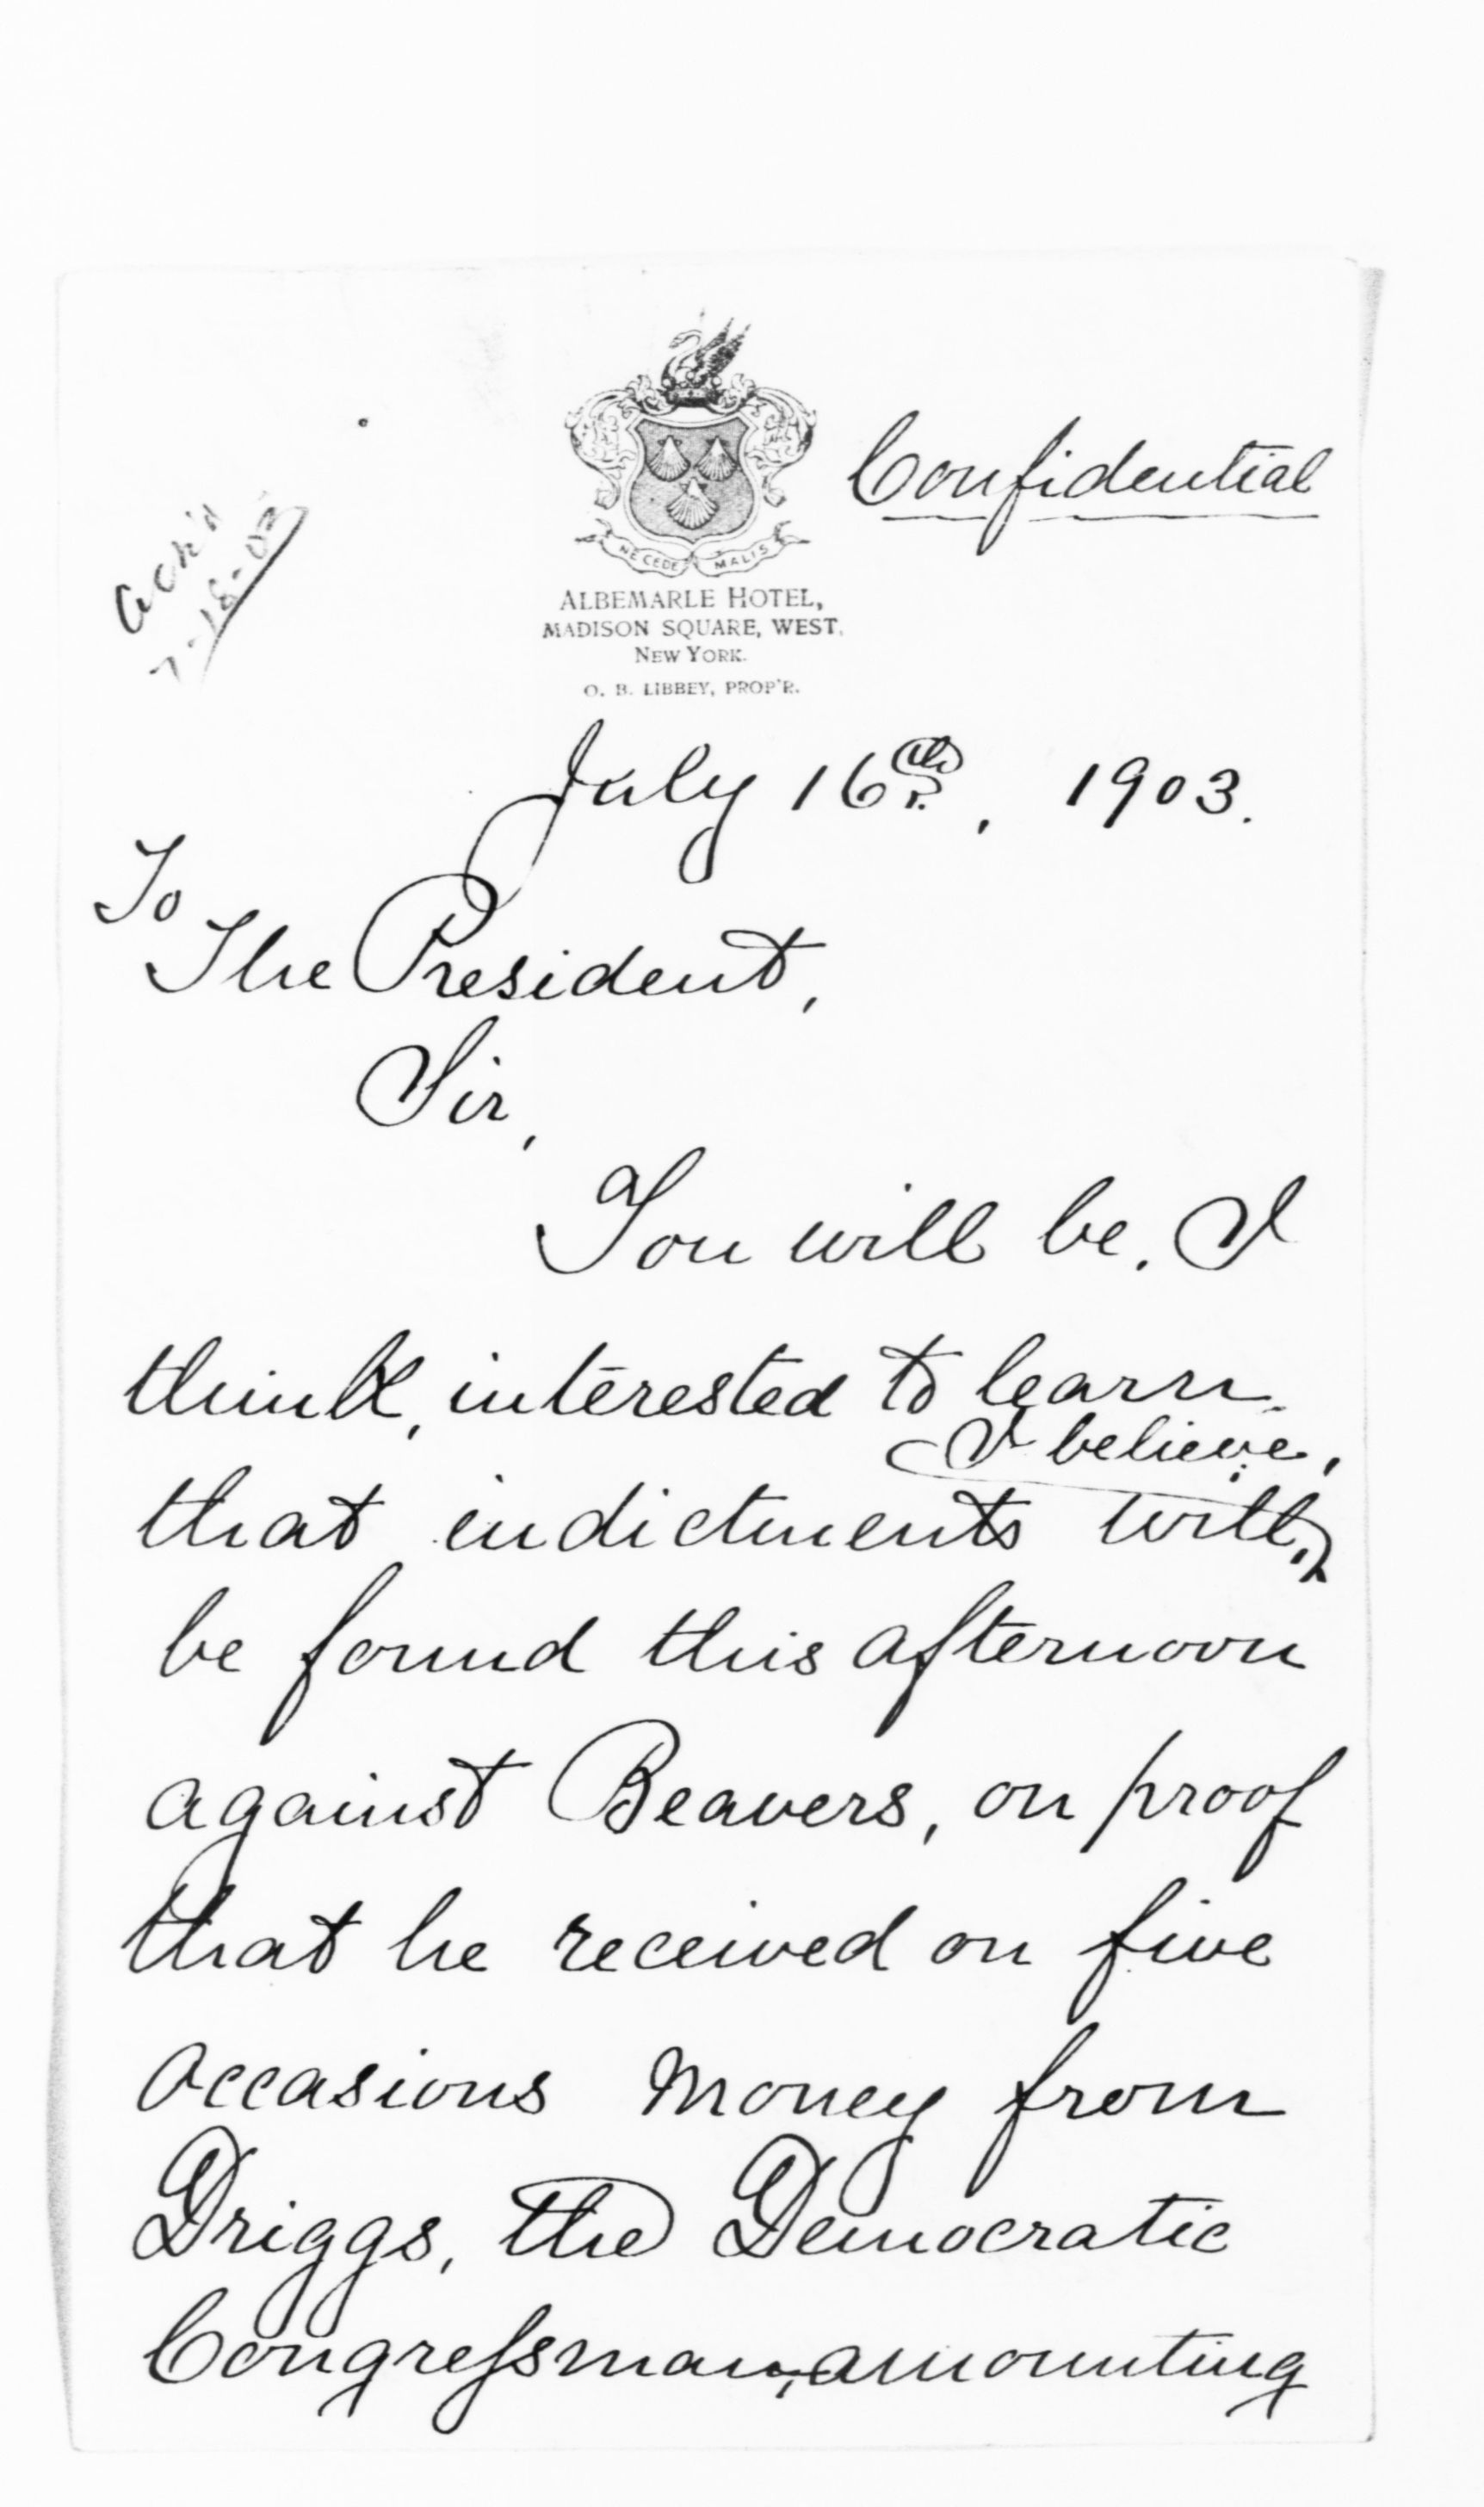 Confidential
Ack'd
7-18-03
NE CEDE MALIS
ALBEMARLE HOTEL,
MADISON SQUARE, WEST.
NEW YORK.
O. B. LIBBEY, PROP'R.
July 16th, 1903.
To
The President,
Sir,
You will be, I
think, interested to learn
I believe,
that indictments will,
be found this afternoon
against Beavers, on proof
that he received on five
occasions money from
Driggs, the Democratic
Congressman, amounting